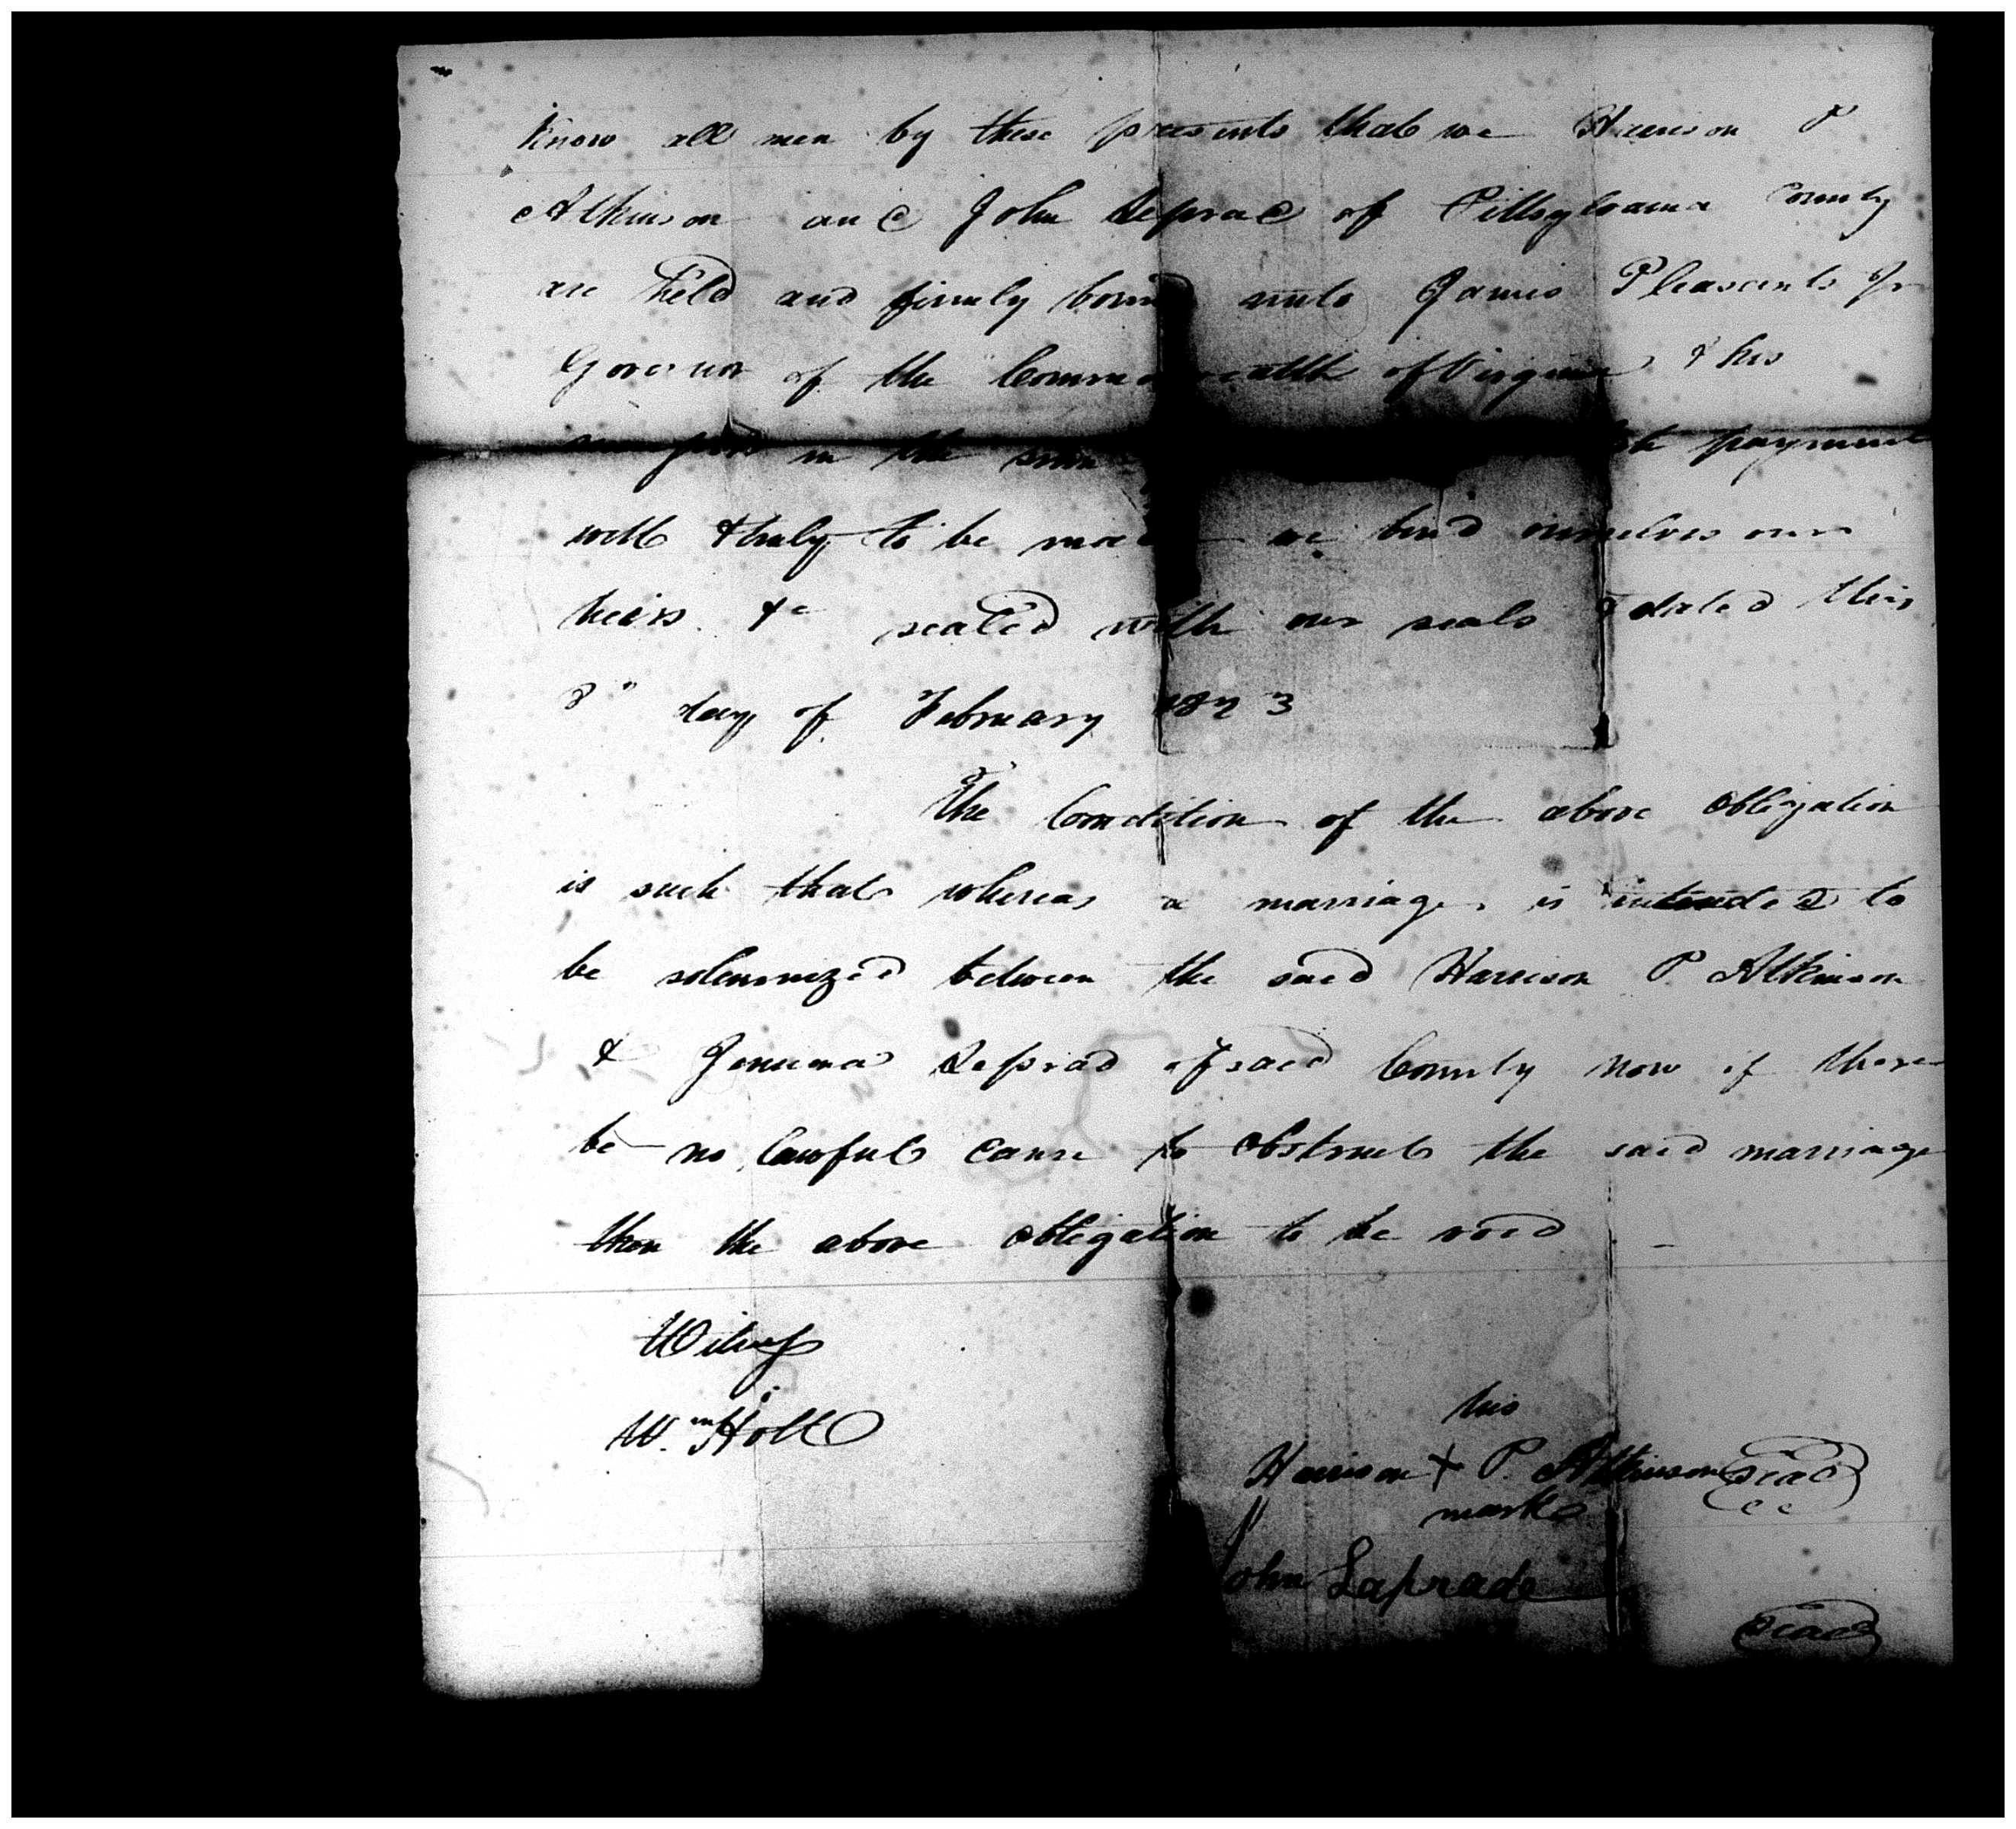 Know all men by these presents that we Harrison P
Atkinson and John Leprad of Pittsylvania County
are held and firmly bound unto James Pleasants Jr
Governor of the Commonwealth of Virginia & his
in the sum payment
well & truly to be made we bind ourselves our
heirs &c sealed with our seals & dated this
day of February 1823
The Condition of the above obligation
is such that whereas a marriage is intended to
be solemnized between the said Harrison P. Atkinson
& Jemima Leprad of said County now if there
be no lawful cause to obstruct the said marriage
then the above obligation to be void
Witness
Wm Holt
his
Harrison + P. Atkinson Seal
mark
John Laprade
Seal